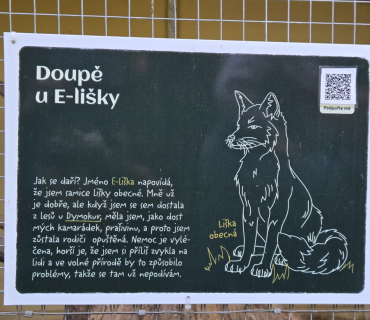 Doupě
u E-lišky
Podpořte mě
Jak se daří? Jméno E-liška napovídá,
že jsem samice lišky obecné. Mně už
je dobře, ale když jsem se sem dostala
z lesů u Dymokur, měla jsem, jako dost
mých kamarádek, prašivinu, a proto jsem
zůstala rodiči opuštěná. Nemoc je vylé-
čena, horší je, že jsem si příliš zvykla na
lidi a ve volné přírodě by to způsobilo
problémy, takže se tam už nepodívám.
Liška
obecná